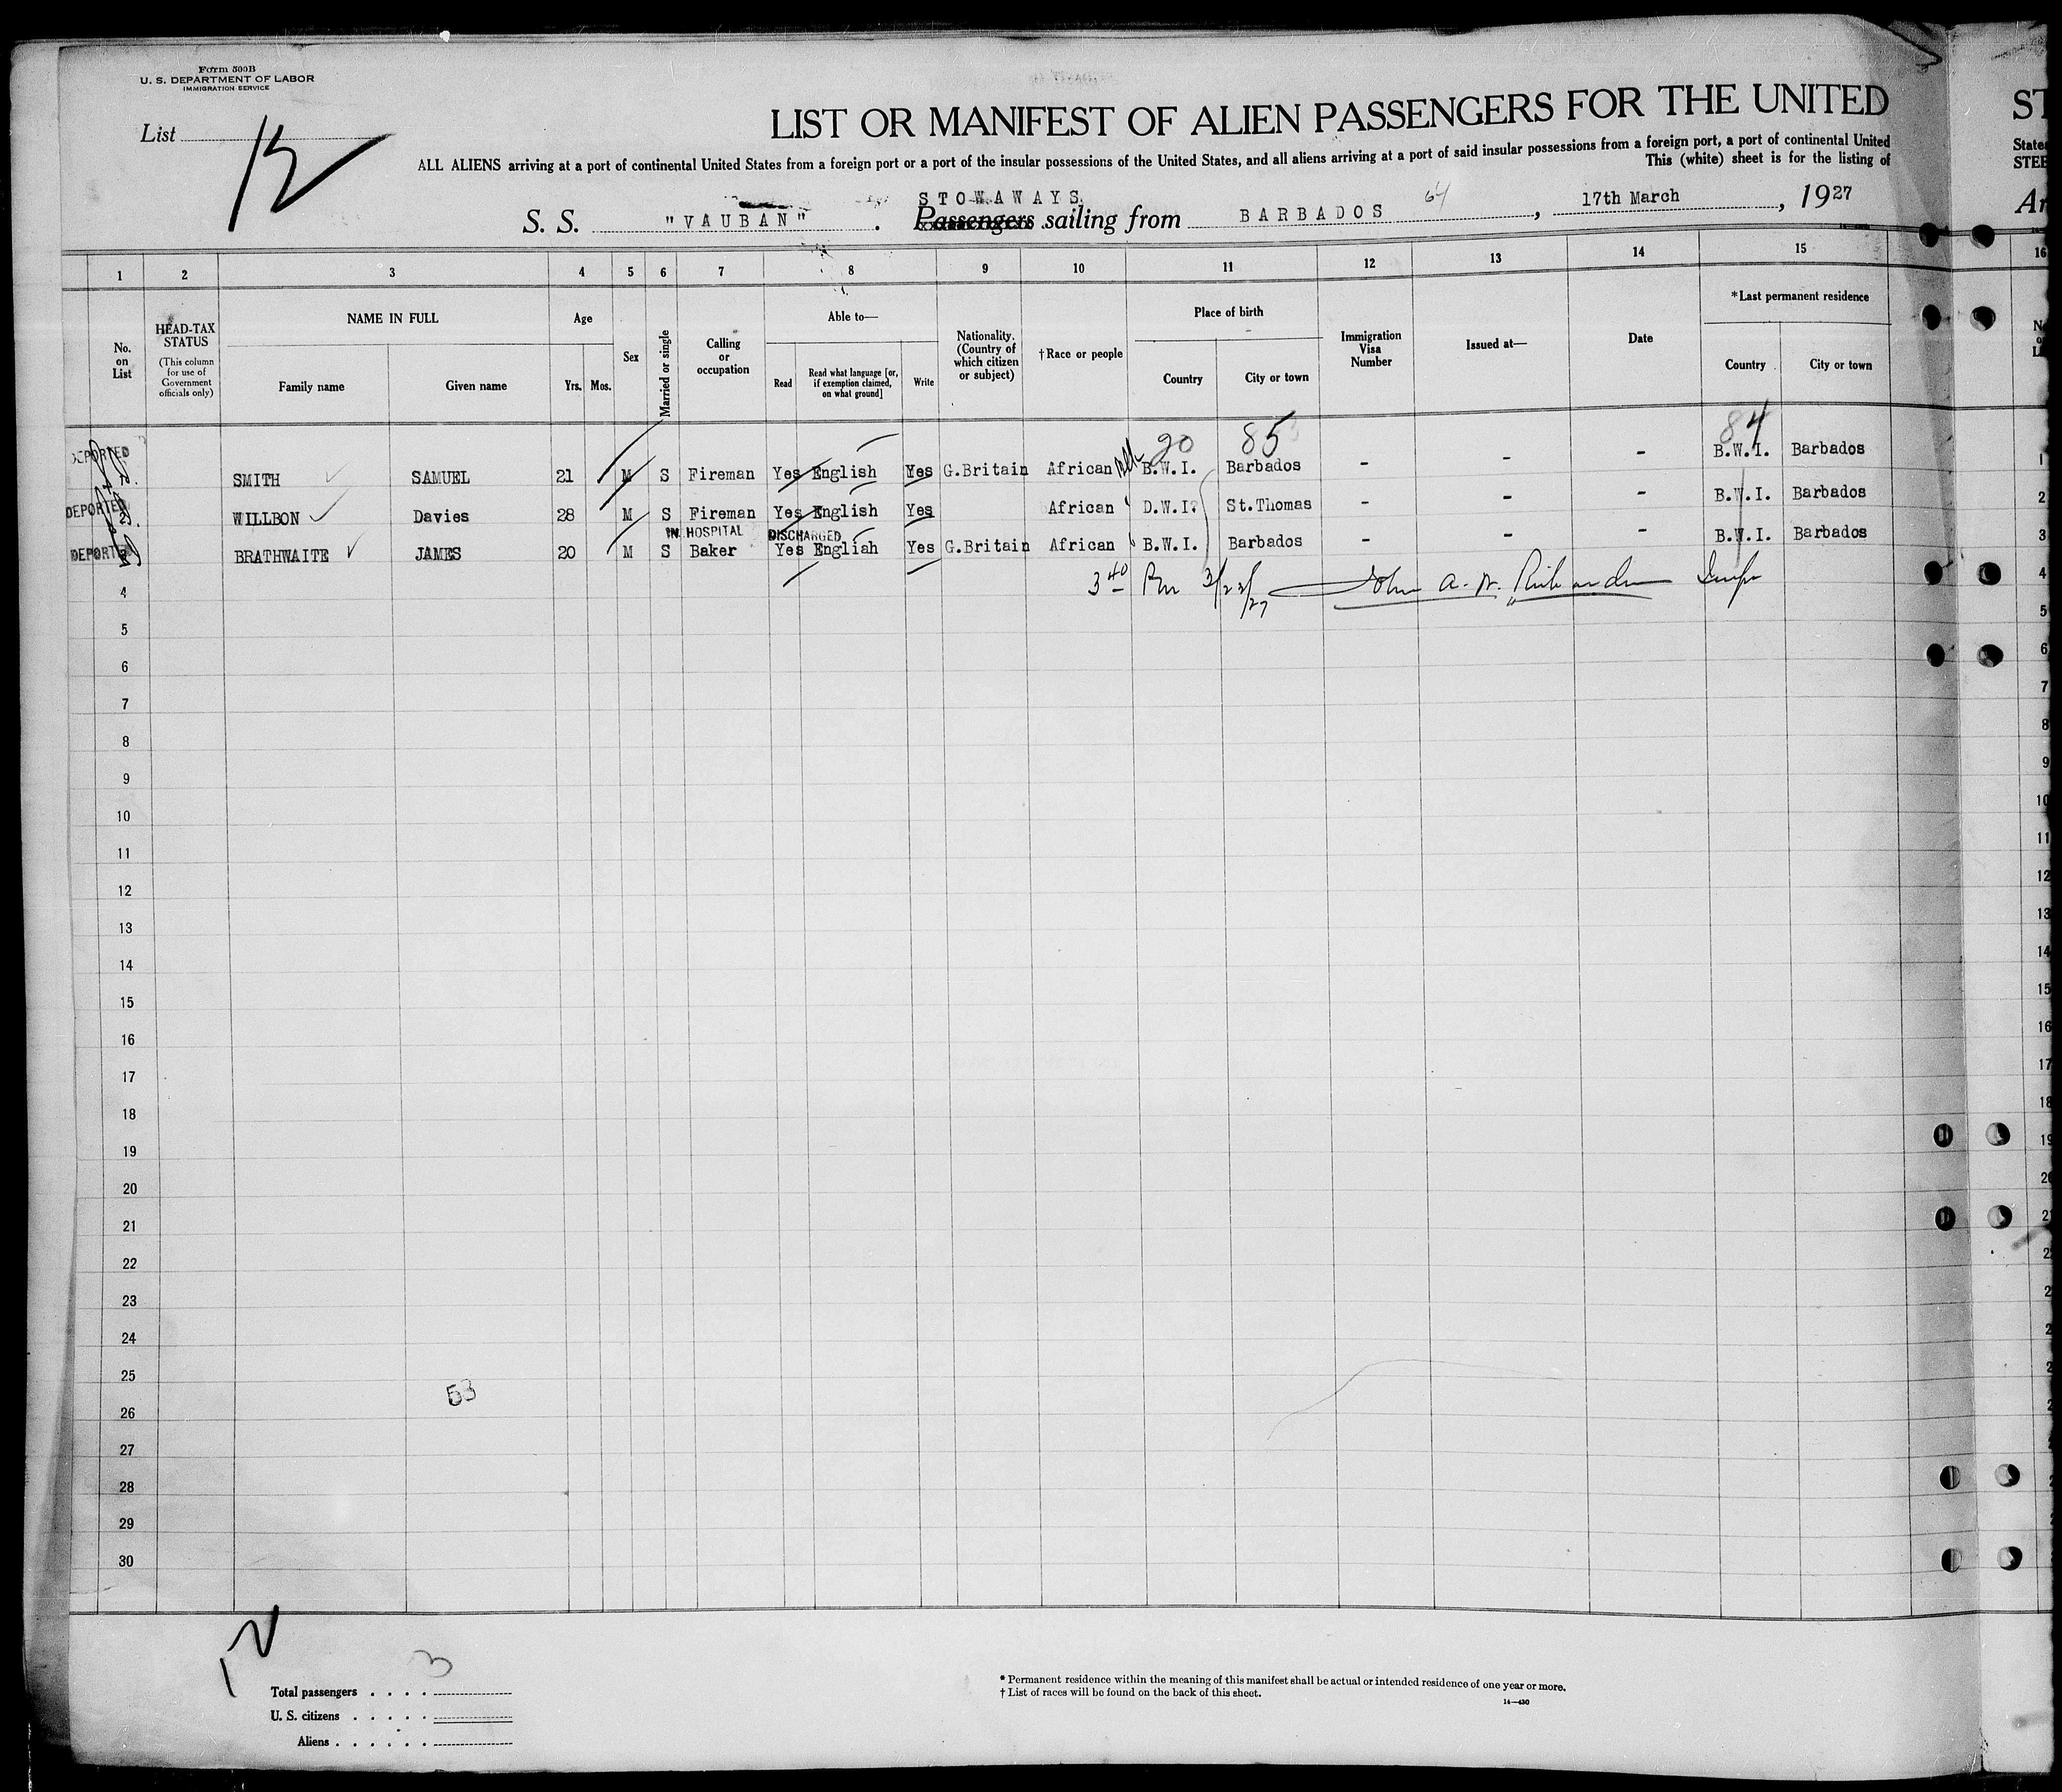 Form 500B
U. S. DEPARTMENT OF LABOR
IMMIGRATION SERVICE
List 12
LIST OR MANIFEST OF ALIEN PASSENGERS FOR THE UNITED
ST
ALL ALIENS arriving at a port of continental United States from a foreign port or a port of the insular possessions of the United States, and all aliens arriving at a port of said insular possessions from a foreign port, a port of continental United
States
This (white) sheet is for the listing of
STEE
STOWAWAYS
S. S. "VAUBAN" . Passengers sailing from BARBADOS 64 , 17th March , 1927
Ar
1 2 3 4 5 6 7 8 9 10 11 12 13 14 15 16
No. on List
HEAD-TAX STATUS
(This column for use of Government officials only)
NAME IN FULL
Family name
Given name
Age
Yrs.
Mos.
Sex
Married or single
Calling or occupation
Able to—
Read
Read what language [or, if exemption claimed, on what ground]
Write
Nationality. (Country of which citizen or subject)
†Race or people
Place of birth
Country
City or town
Immigration Visa Number
Issued at—
Date
*Last permanent residence
Country
City or town
90 85 84
DEPORTED
SMITH SAMUEL 21 M S Fireman Yes English Yes G.Britain African B.W.I. Barbados - - - B.W.I. Barbados 1
DEPORTED
WILLBON Davies 28 M S Fireman Yes English Yes African D.W.I. St.Thomas - - - B.W.I. Barbados 2
IN HOSPITAL DISCHARGED
DEPORTED
BRATHWAITE JAMES 20 M S Baker Yes Engliah Yes G.Britain African B.W.I. Barbados - - - B.W.I. Barbados 3
4 3 40 Pm 3/22/27 John A. W. Richardson Inspr 4
5 5
6 6
7 7
8 8
9 9
10 10
11 11
12 12
13 13
14 14
15 15
16 16
17 17
18 18
19 19
20 20
21 21
22
23
24
25
53
26
27
28
29
30
12
3
Total passengers . . . .
U. S. citizens . . . . .
Aliens . . . . . .
* Permanent residence within the meaning of this manifest shall be actual or intended residence of one year or more.
† List of races will be found on the back of this sheet.
14—430